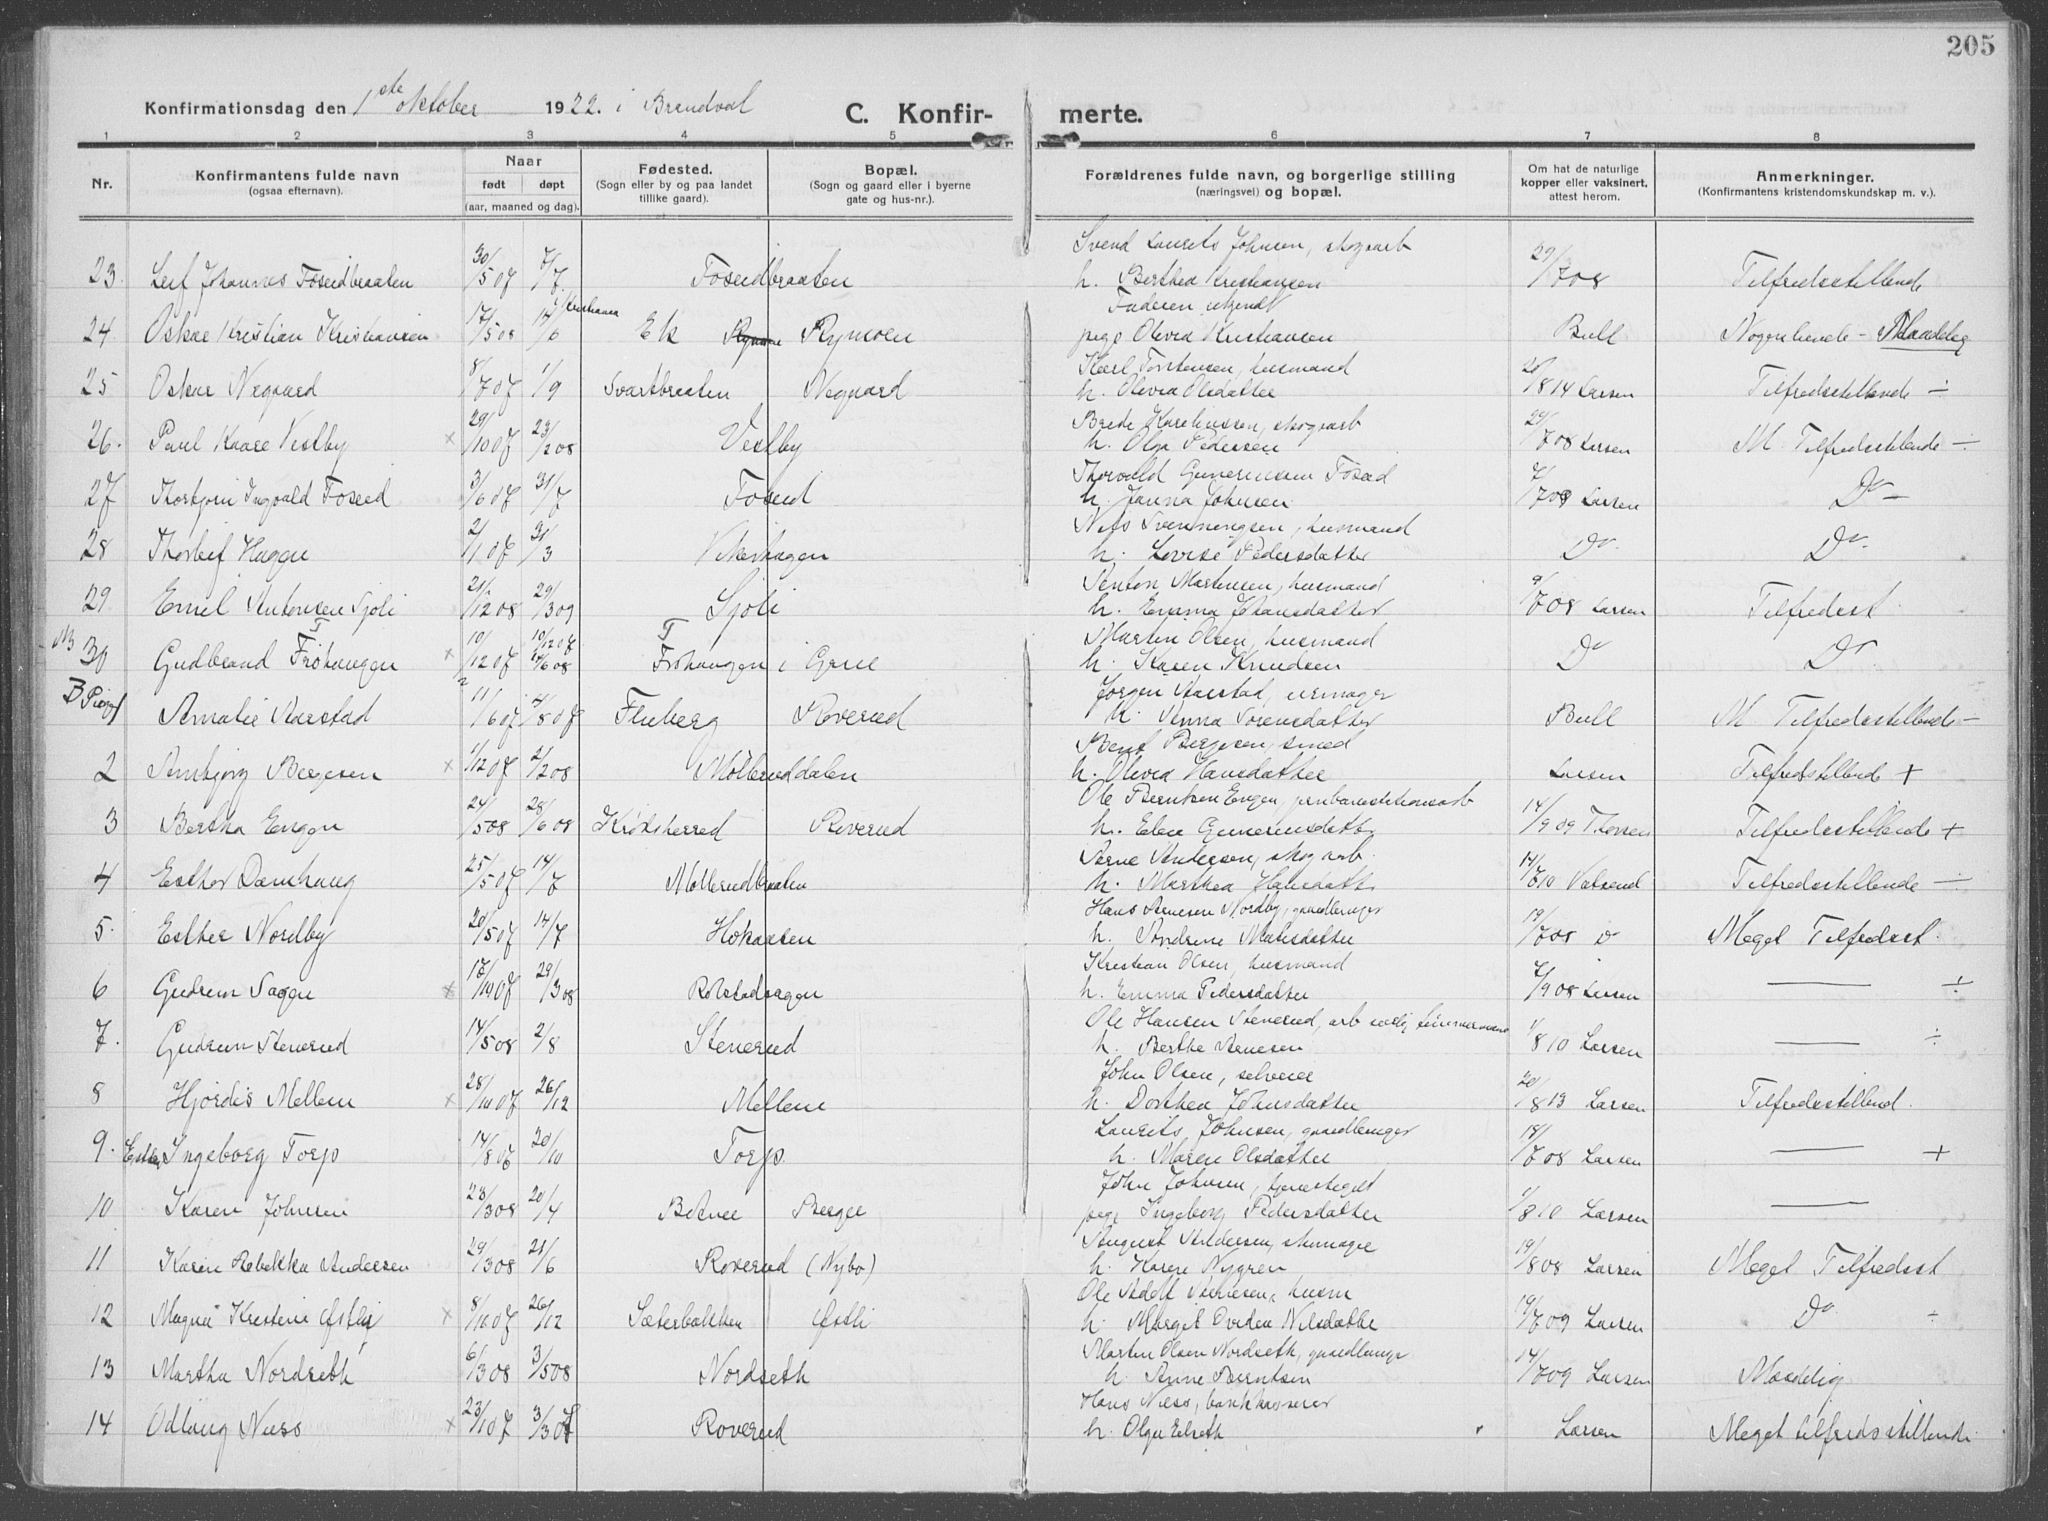 205
Konfirmationsdag den 1ste oktober 1922. i Brandval C. Konfir- merte.
1 2 3 4 5 6 7 8
Nr. Konfirmantens fulde navn (ogsaa efternavn). Naar født døpt (aar, maaned og dag). Fødested. (Sogn eller by og paa landet tillike gaard). Bopæl. (Sogn og gaard eller i byerne gate og hus-nr.). Forældrenes fulde navn, og borgerlige stilling (næringsvei) og bopæl. Om hat de naturlige kopper eller vaksinert, attest herom. Anmerkninger. (Konfirmantens kristendomskundskap m. v.).
Svend Laurits Johnsen, skogsarb
23. Leif Johannes Foseidbraaten 30/5 07 7/7. Foseidbraaten h. Berthea Kristiansen 29/7 08 Tilfredsstillende
Faderen ukjendt
24 Oskar Kristian Kristiansen 17/5 08 14/6 Kristiania Ek Rymoen pige Olivia Kristiansen Bull Nogenlunde - Maadelig
Karl Torstensen, husmand
25 Oskar Negaard 8/7 07 1/9 Svartbraaten Negaard h. Olivia Olsdatter 20/8 14 Larsen Tilfredsstillende ÷
Brede Karelinssen, skogsarb
26. Paul Kaare Vestby x 29/10 07 23/2 08 Vestby h. Olga Pedersen 29/7 08 Larsen M. Tilfredsstillende -
Thorvald Gunerinssen Foseid
27 Thorbjørn Ingvald Foseid 3/6 07 31/7 Foseid h. Janna Johnsen 7/7 08 Larsen Do -
Nils Svenningsen, husmand
28 Thorleif Hagen 2/1 07 31/3 Vikerhagen h. Lovise Pedersdatter Do. Do.
Anton Martinsen, husmand
29 Emil Antonsen Sjøli 21/12 08 29/3 09 Sjøli h. Emma Johansdatter 9/7 08 Larsen Tilfredsst.
Martin Olsen, husmand
NB 30 Gudbrand Frøhaugen x 10/12 07 Frøhaugen i Grue h. Karen Knudsen Do Do
Jørgen Aarstad, urmager
Amalie Aarstad 11/6 07 4/8 07 Fluberg Roverud h. Anna Sørensdatter Bull M. Tilfredsstillende -
Bent Bergesen, smed
2 Arnbjørg Bergesen x 1/12 07 2/2 08 Mølleruddalen h. Olivia Hansdatter Larsen Tilfredsstillende +
Ole Berntsen Engen, jernbanestationsarb
3 Bertha Engen 24/5 08 28/6 08 Krødsherred Roverud h. Elen Gunerinsdatt. 14/9 09 Thoresen Tilfredsstillende +
Arne Andersen, skogarb.
4 Esther Damhaug 25/5 07 14/7 Møllerudbraaten h. Marthea Hansdatter 14/7 10 Tilfredsstillende -
Hans Arnesen Nordby, gaardbruger
5. Esther Nordby 20/5 07 14/7 Hokaasen h. Andrine Matisdatter 19/7 08 Meget Tilfredsst.
Kristian Olsen, husmand
6 Gudrun Sagen x 17/10 07 29/3 08 Rolstadsagen h. Emma Pedersdatter 7/9 08 Larsen — ÷
Ole Hansen Stenerud, arb
7. Gudrun Stenerud 14/5 08 2/8 Stenerud h. Berthe Arnesen 1/8 10 Larsen — ÷
John Olsen, selveier
8 Hjørdis Mellem x 28/10 07 26/12 Mellem h. Dorthea Johnsdatter 20/8 13 Larsen Tilfredsstillend.
Laurits Johnsen, gaardbruger
9. Ester Ingeborg Torp 14/8 07 20/10 Torp. h. Maren Olsdatter 18/7 08 Larsen — +
John Johnsen,
10 Karen Johnsen 23/3 08 20/4 Berger pige Ingeborg Pedersdatter 1/8 10 Larsen —
August Andersen, skomager
11 Karen Rebekka Andersen 29/3 08 21/6 Roverud (Nybo) h. Karen Nygren 19/8 08 Larsen Meget Tilfredsst
Ole Adolf husm
12 Magna Kristine Østli x 8/10 07 26/12 Sæterbakken Østli h. Margit Ovidea Nilsdatter 19/7 09 Larsen Do ÷
Martin Olsen Nordseth, gaardbruger
13 Martha Nordseth 6/3 08 3/5 08 Nordseth h. Anne Berntsen 14/7 09 Larsen Maadelig
Hans Næss, bankkasserer
14 Odlaug Næss x 23/10 7 Roverud h. Olga Larsen Meget tilfredsstillende